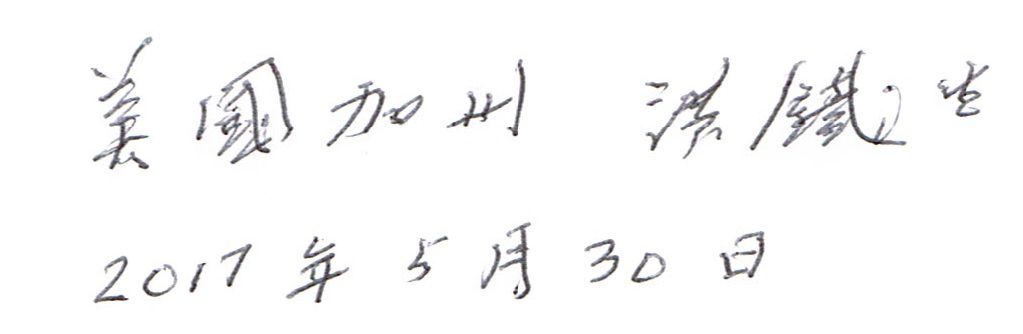 美國加州 洪鐵生
2017年5月30日